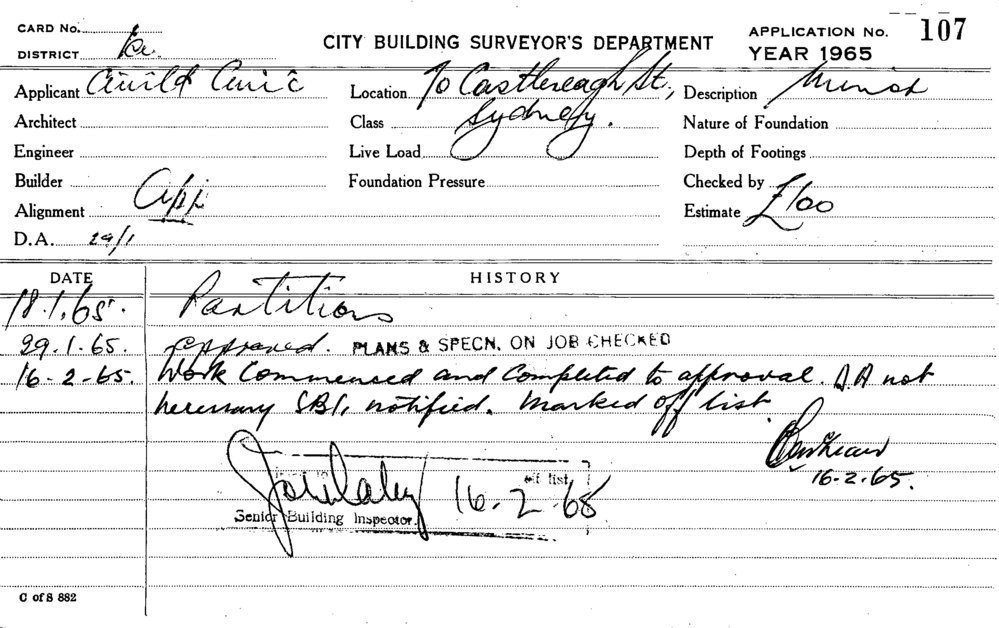 CARD No.
CITY BUILDING SURVEYOR'S DEPARTMENT
APPLICATION No. 107
DISTRICT
YEAR 1965
Applicant Civic
Location 70 Castlereagh St.,
Description Minor
Architect
Class Sydney.
Nature of Foundation
Engineer
Live Load
Depth of Footings
Builder App
Foundation Pressure
Checked by
Alignment
Estimate £100
D.A. 29/1
DATE HISTORY
18.1.65. Partitions
29.1.65. approved. PLANS & SPECN. ON JOB CHECKED
16-2-65. Work Commenced and Completed to approval. D.A not
necessary SBI, notified. Marked off list
16-2-65.
off list
16-2-65
Senior Building Inspector.
C of S 882